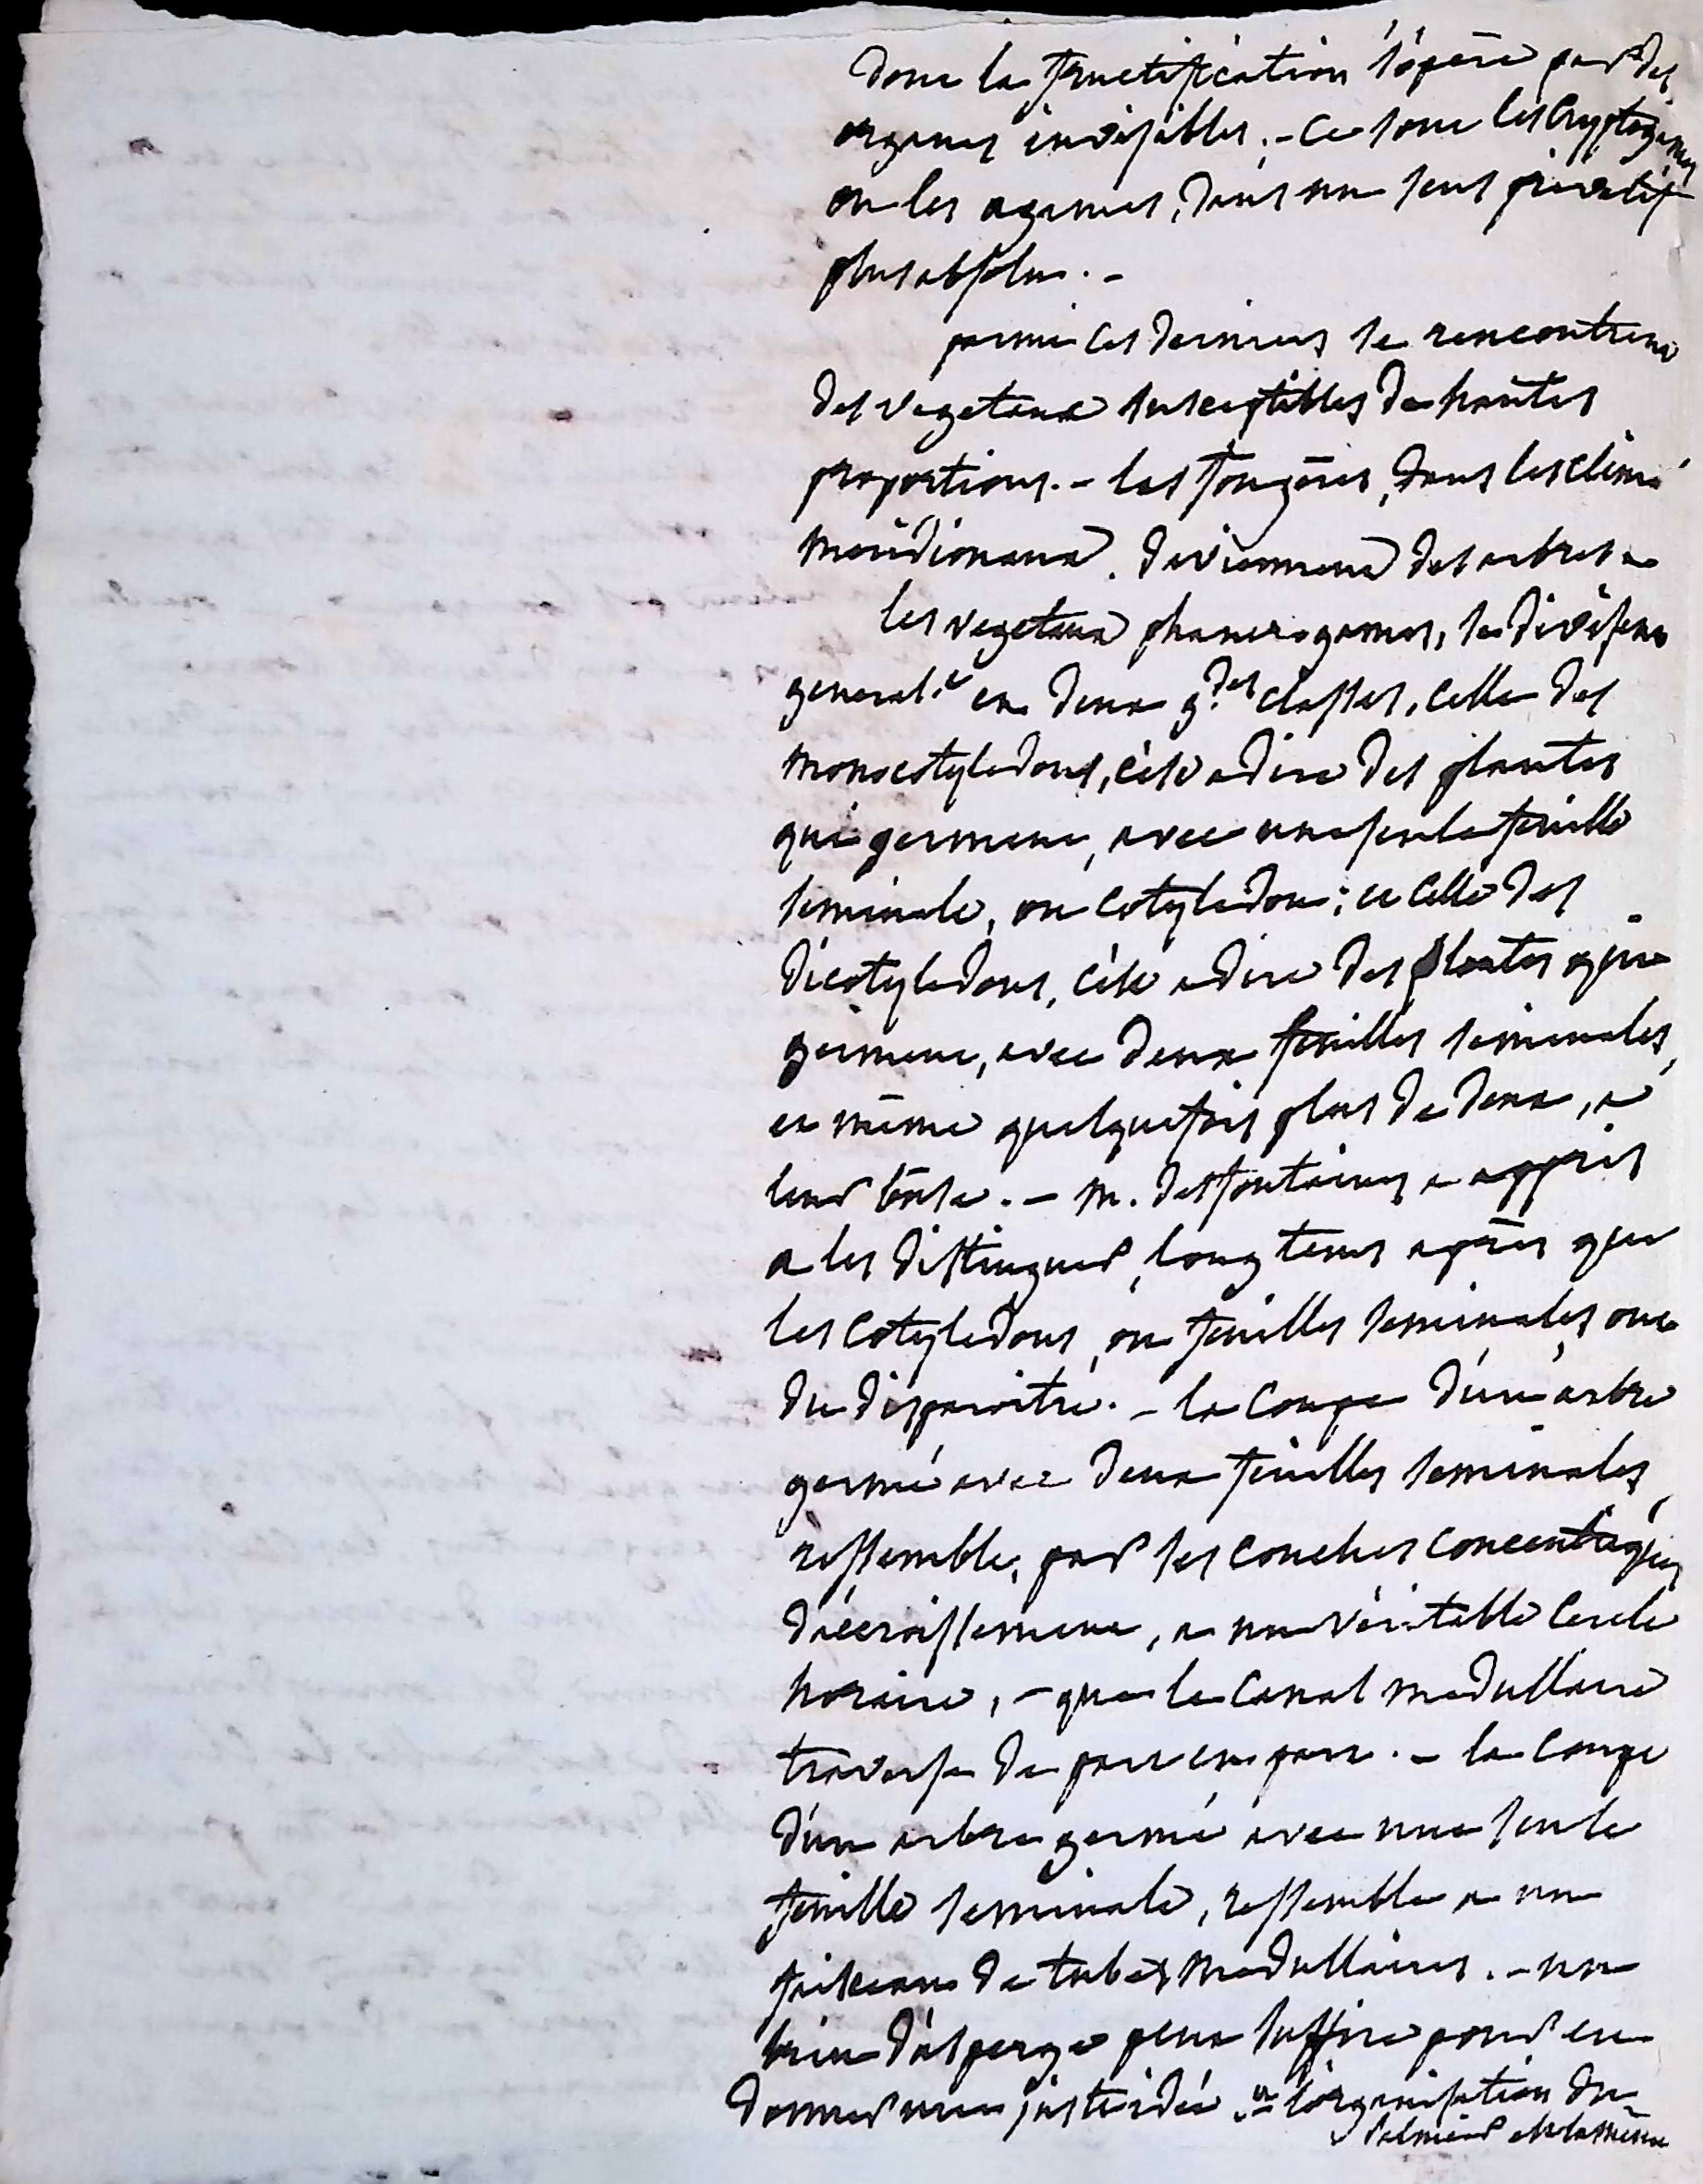 dont la fructification s'opère par des
organes invisibles. - ce sont les Cryptogames
ou les agames, dans un sens privatif
plus absolu. -
parmi ces derniers se rencontrent
des vegetaux susceptibles de hautes
proportions. - les fougères, dans les climats
meridionaux, deviennent des arbres -
les vegetaux phanerogames, se divisent
general.t en deux g.des classes, celle des
monocotyledons, c'est a dire des plantes
qui germent, avec une seule feuille
seminale, ou cotyledon; et celle des
dicotyledons, c'est a dire des plantes qui
germent, avec deux feuilles seminales,
et même quelquefois plus de deux, a
leur base. - M. desfontaines a appris
a les distinguer, long tems après que
les cotyledons, ou feuilles seminales, ont
du disparoitre. - la coupe d'un arbre
germé avec deux feuilles seminales,
ressemble, par ses couches concentriques
d'accroissement, a un véritable cercle
horaire, - que le canal medullaire
traverse de part en part. - la coupe
d'un arbre germé avec une seule
feuille seminale, ressemble a un
faisceau de tubes medullaires. - un
brin d'asperge peut suffire pour en
donner une juste idée. - l'organisation du
palmier est la même